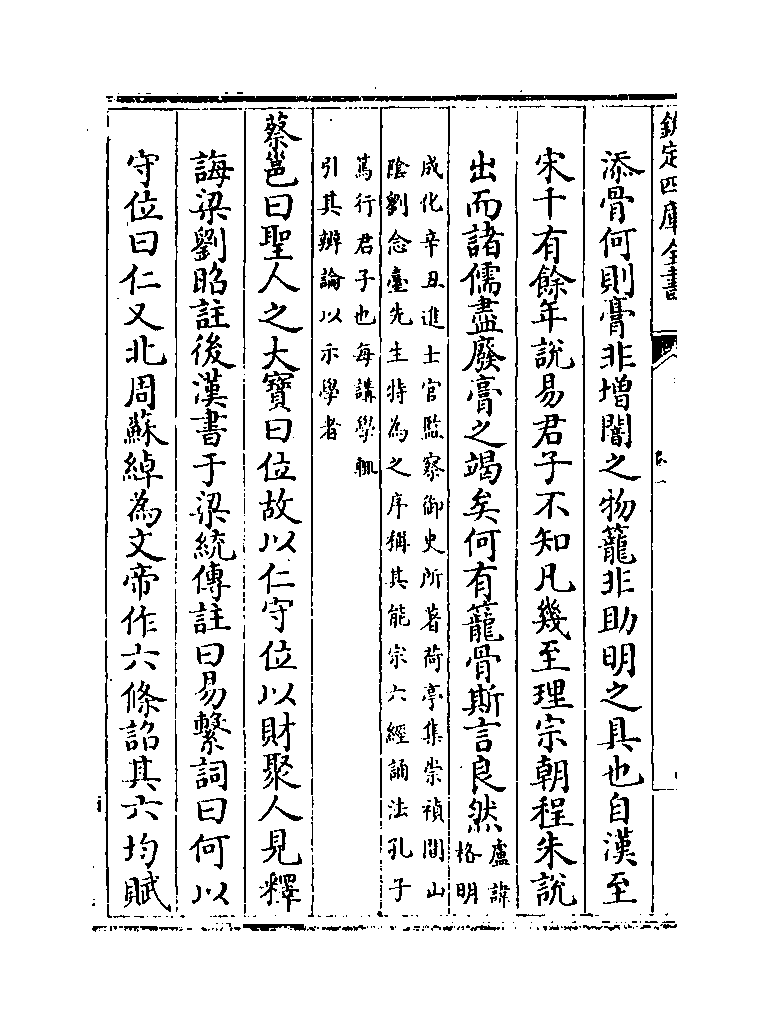 欽定四庫全書
卷一
添骨何則膏非增闇之物籠非助明之具也自漢至
宋千有餘年說易君子不知凡幾至理宗朝程朱說
出而諸儒盡廢膏之竭矣何有籠骨斯言良然盧諱
格明
成化辛丑進士官監察御史所著荷亭集崇禎間山
陰劉念臺先生特為之序稱其能宗六經誦法孔子
篤行君子也每講學輒
引其辨論以示學者
蔡邕曰聖人之大寶曰位故以仁守位以財聚人見釋
誨梁劉昭註後漢書于梁統傳註曰易繫詞曰何以
守位曰仁又北周蘇綽為文帝作六條詔其六均賦